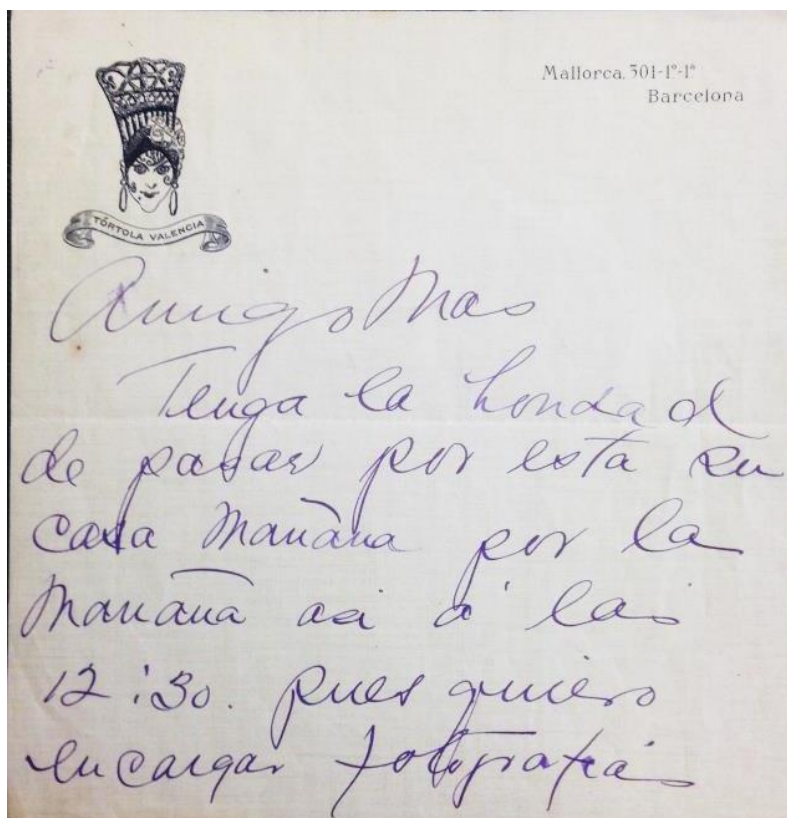 Mallorca. 301-1º-1ª
Barcelona
TÓRTOLA VALENCIA
Amigo Mas
Tenga la bondad
de pasar por esta su
casa Mañana por la
Mañana asi á las
12:30. pues quiero
encargar fotografias